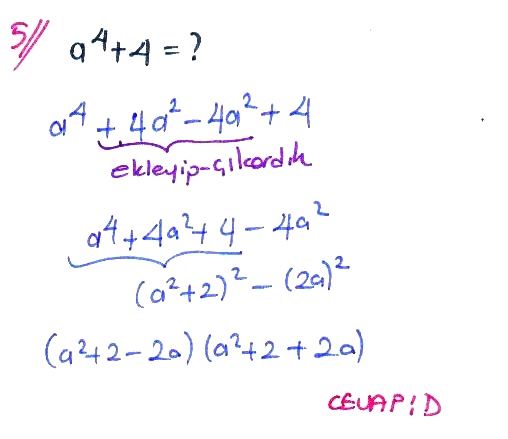 5// a⁴+4=?
a⁴+4a²-4a²+4
ekleyip-çıkardık
a⁴+4a²+4-4a²
(a²+2)²-(2a)²
(a²+2-2a)(a²+2+2a)
CEVAP:D